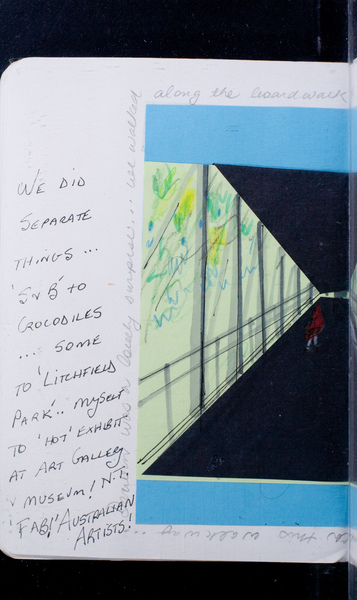 along the boardwalk
WE DID
SEPARATE
THINGS ...
'S & B' TO
CROCODILES
... SOME
TO 'LITCHFIELD
PARK'.. MYSELF
TO 'HOT' EXHIBIT
AT ART GALLEY
MUSEUM! N.T.
FAB! 'AUSTRALIAN
ARTISTS!'
was a lovely surprise... we walked
this walkway ...